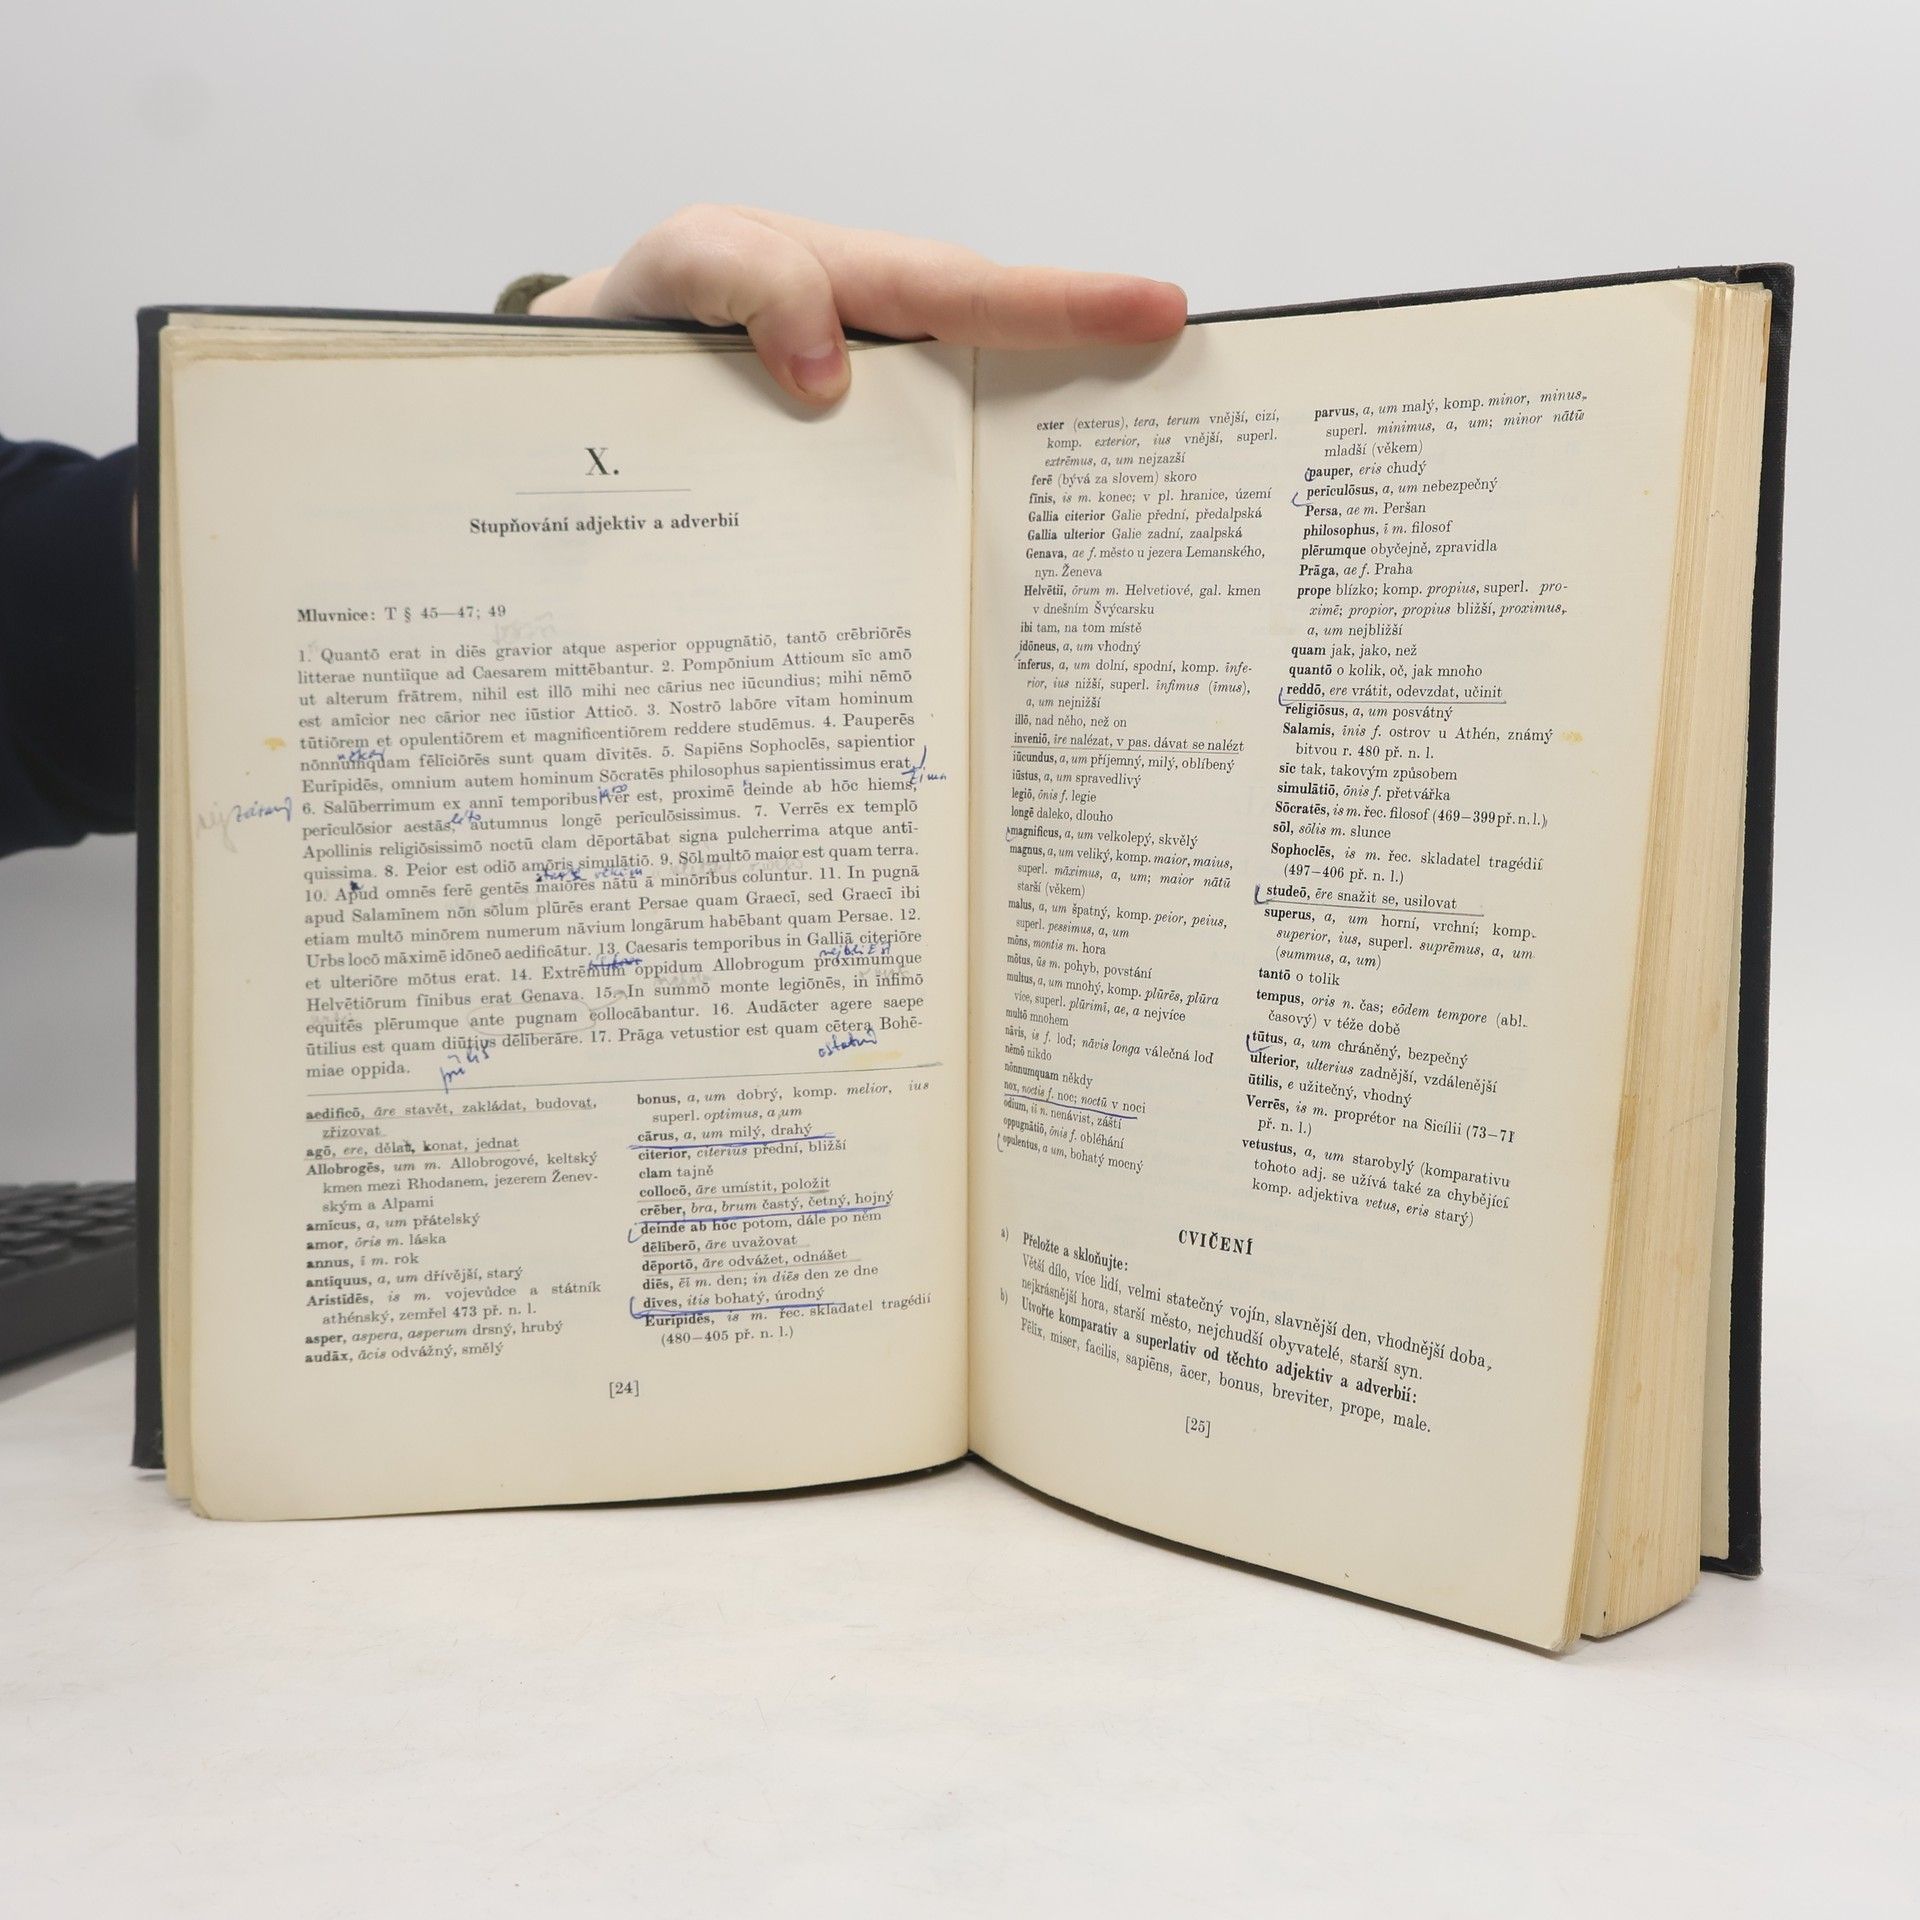 X.
Stupňování adjektiv a adverbií
Mluvnice: T § 45—47; 49
1. Quantō erat in diēs gravior atque asperior oppugnātiō, tantō crēbriōrēs
litterae nuntiīque ad Caesarem mittēbantur. 2. Pompōnium Atticum sīc amō
ut alterum frātrem, nihil est illō mihi nec cārius nec iūcundius; mihi nēmō
est amīcior nec cārior nec iūstior Atticō. 3. Nostrō labōre vītam hominum
tūtiōrem et opulentiōrem et magnificentiōrem reddere studēmus. 4. Pauperēs
nōnnumquam fēlīciōrēs sunt quam dīvitēs. 5. Sapiēns Sophoclēs, sapientior
Eurīpidēs, omnium autem hominum Sōcratēs philosophus sapientissimus erat.
zima
6. Salūberrimum ex annī temporibus vēr est, proximē deinde ab hōc hiems,
perīculōsior aestās, autumnus longē perīculōsissimus. 7. Verrēs ex templō
léto
Apollinis religiōsissimō noctū clam dēportābat signa pulcherrima atque antī-
quissima. 8. Peior est odiō amōris simulātiō. 9. Sōl multō maior est quam terra.
10. Apud omnēs ferē gentēs maiōrēs nātū ā minōribus coluntur. 11. In pugnā
apud Salamīnem nōn sōlum plūrēs erant Persae quam Graecī, sed Graecī ibi
etiam multō minōrem numerum nāvium longārum habēbant quam Persae. 12.
Urbs locō māximē idōneō aedificātur. 13. Caesaris temporibus in Galliā citeriōre
et ulteriōre mōtus erat. 14. Extrēmum oppidum Allobrogum proximumque
Helvētiōrum fīnibus erat Genava. 15. In summō monte legiōnēs, in īnfimō
equitēs plērumque ante pugnam collocābantur. 16. Audācter agere saepe
ūtilius est quam diūtius dēlīberāre. 17. Prāga vetustior est quam cētera Bohē-
příliš
ostatní
miae oppida.
aedificō, āre stavět, zakládat, budovat,
zřizovat
agō, ere, dělat, konat, jednat
Allobrogēs, um m. Allobrogové, keltský
kmen mezi Rhodanem, jezerem Ženev-
ským a Alpami
amīcus, a, um přátelský
amor, ōris m. láska
annus, ī m. rok
antīquus, a, um dřívější, starý
Aristīdēs, is m. vojevůdce a státník
athénský, zemřel 473 př. n. l.
asper, aspera, asperum drsný, hrubý
audāx, ācis odvážný, smělý
bonus, a, um dobrý, komp. melior, ius
superl. optimus, a, um
cārus, a, um milý, drahý
citerior, citerius přední, bližší
clam tajně
collocō, āre umístit, položit
crēber, bra, brum častý, četný, hojný
deinde ab hōc potom, dále po něm
dēlīberō, āre uvažovat
dēportō, āre odvážet, odnášet
diēs, ēī m. den; in diēs den ze dne
dīves, itis bohatý, úrodný
Eurīpidēs, is m. řec. skladatel tragédií
(480—405 př. n. l.)
[24]
exter (exterus), tera, terum vnější, cizí,
komp. exterior, ius vnější, superl.
extrēmus, a, um nejzazší
ferē (bývá za slovem) skoro
fīnis, is m. konec; v pl. hranice, území
Gallia citerior Galie přední, předalpská
Gallia ulterior Galie zadní, zaalpská
Genava, ae f. město u jezera Lemanského,
nyn. Ženeva
Helvētiī, ōrum m. Helvetiové, gal. kmen
v dnešním Švýcarsku
ibi tam, na tom místě
idōneus, a, um vhodný
inferus, a, um dolní, spodní, komp. īnfe-
rior, ius nižší, superl. īnfimus (īmus),
a, um nejnižší
illō, nad něho, než on
inveniō, īre nalézat, v pas. dávat se nalézt
iūcundus, a, um příjemný, milý, oblíbený
iūstus, a, um spravedlivý
legiō, ōnis f. legie
longē daleko, dlouho
magnificus, a, um velkolepý, skvělý
magnus, a, um veliký, komp. maior, maius,
superl. māximus, a, um; maior nātū
starší (věkem)
malus, a, um špatný, komp. peior, peius,
superl. pessimus, a, um
mōns, montis m. hora
mōtus, ūs m. pohyb, povstání
multus, a, um mnohý, komp. plūrēs, plūra
více, superl. plūrimī, ae, a nejvíce
multō mnohem
nāvis, is f. loď; nāvis longa válečná loď
nēmō nikdo
nōnnumquam někdy
nox, noctis f. noc; noctū v noci
odium, iī n. nenávist, záští
oppugnātiō, ōnis f. obléhání
opulentus, a um, bohatý mocný
parvus, a, um malý, komp. minor, minus,
superl. minimus, a, um; minor nātū
mladší (věkem)
pauper, eris chudý
perīculōsus, a, um nebezpečný
Persa, ae m. Peršan
philosophus, ī m. filosof
plērumque obyčejně, zpravidla
Prāga, ae f. Praha
prope blízko; komp. propius, superl. pro-
ximē; propior, propius bližší, proximus,
a, um nejbližší
quam jak, jako, než
quantō o kolik, oč, jak mnoho
reddō, ere vrátit, odevzdat, učinit
religiōsus, a, um posvátný
Salamis, īnis f. ostrov u Athén, známý
bitvou r. 480 př. n. l.
sīc tak, takovým způsobem
simulātiō, ōnis f. přetvářka
Sōcratēs, is m. řec. filosof (469—399 př. n. l.)
sōl, sōlis m. slunce
Sophoclēs, is m. řec. skladatel tragédií
(497—406 př. n. l.)
studeō, ēre snažit se, usilovat
superus, a, um horní, vrchní; komp.
superior, ius, superl. suprēmus, a, um
(summus, a, um)
tantō o tolik
tempus, oris n. čas; eōdem tempore (abl.
časový) v téže době
tūtus, a, um chráněný, bezpečný
ulterior, ulterius zadnější, vzdálenější
ūtilis, e užitečný, vhodný
Verrēs, is m. proprétor na Sicílii (73—71
př. n. l.)
vetustus, a, um starobylý (komparativu
tohoto adj. se užívá také za chybějící
komp. adjektiva vetus, eris starý)
CVIČENÍ
a) Přeložte a skloňujte:
Větší dílo, více lidí, velmi statečný vojín, slavnější den, vhodnější doba,
nejkrásnější hora, starší město, nejchudší obyvatelé, starší syn.
b) Utvořte komparativ a superlativ od těchto adjektiv a adverbií:
Fēlīx, miser, facilis, sapiēns, ācer, bonus, breviter, prope, male.
[25]